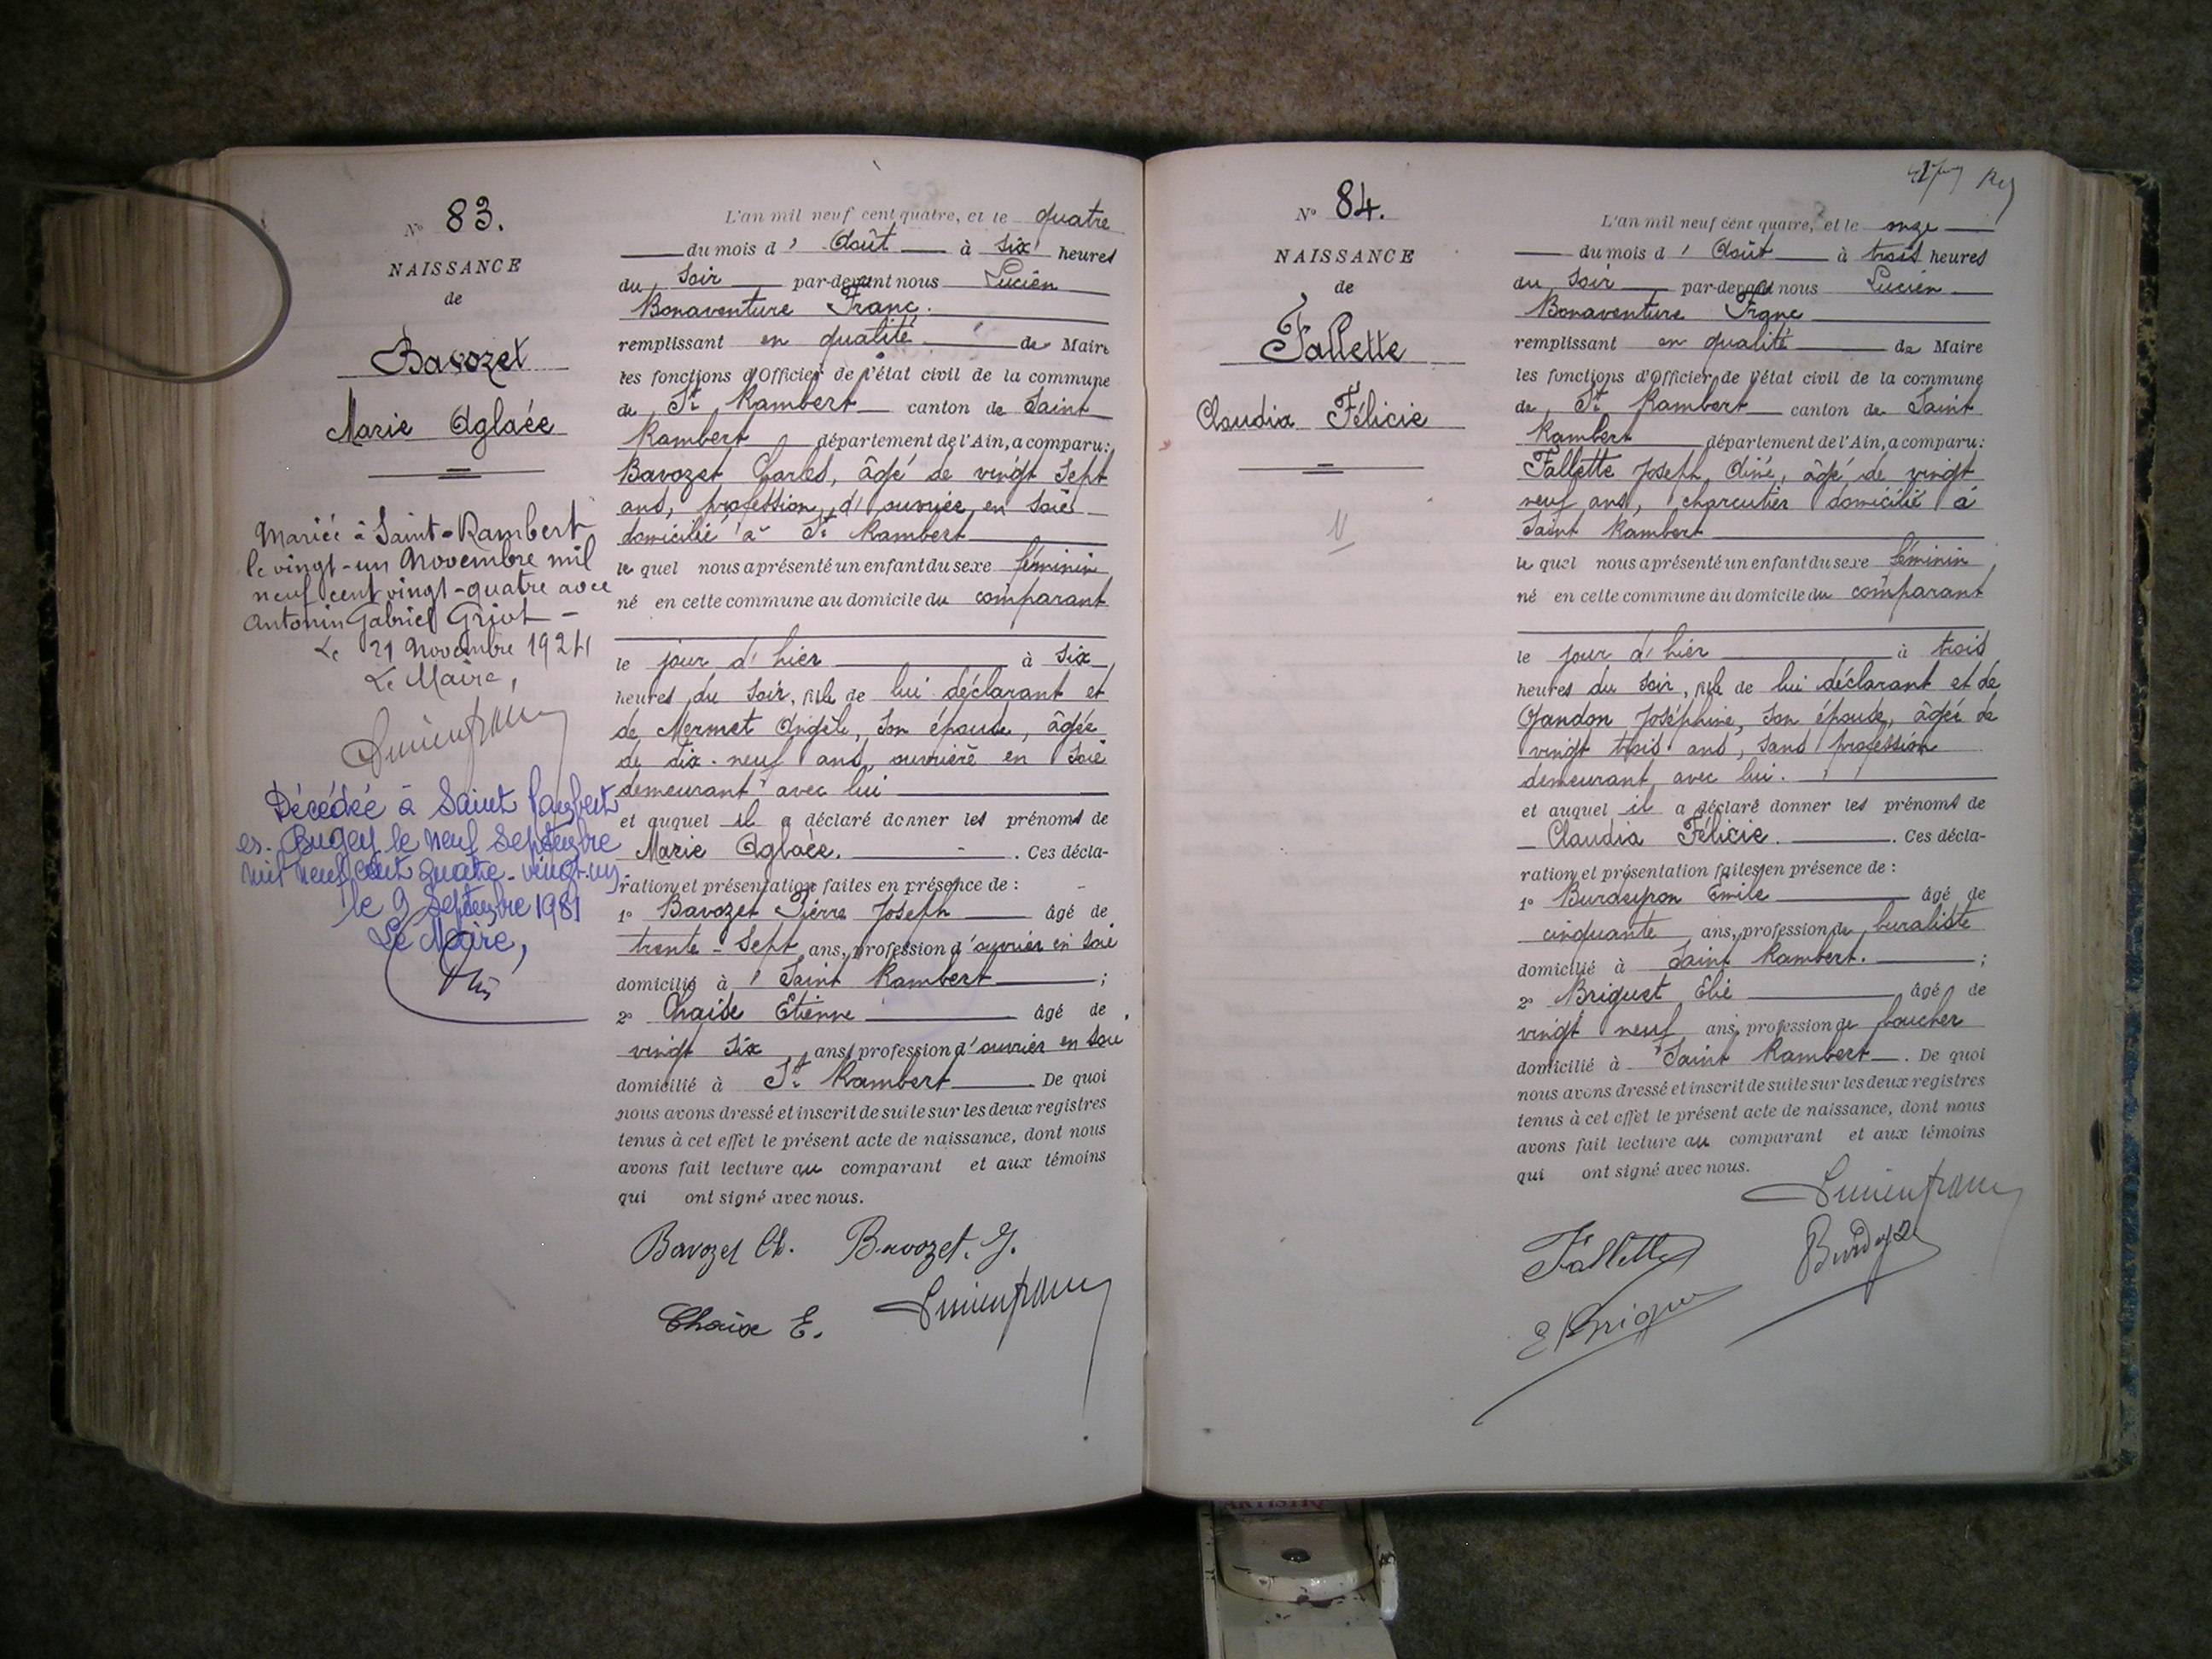 N° 83.
NAISSANCE
de
Bavozet
Marie Aglaée
Mariée à Saint-Rambert
le vingt-un Novembre mil
neuf cent vingt-quatre avec
Antonin Gabriel Griot -
Le 21 Novembre 1924
Le Maire,
Décédée à Saint Rambert
en Bugey le neuf Septembre
mil neuf cent quatre-vingt-un
le 9 Septembre 1981
Le Maire,
L'an mil neuf cent quatre, et le quatre
du mois d'Août à six heures
du Soir par-devant nous Lucien
Bonaventure Franc.
remplissant en qualité de Maire
les fonctions d'Officier de l'état civil de la commune
de St Rambert canton de Saint
Rambert département de l'Ain, a comparu:
Bavozet Charles, âgé de vingt sept
ans, profession d'ouvrier en soie
domicilié à St Rambert
le quel nous a présenté un enfant du sexe féminin
né en cette commune au domicile du comparant
le jour d'hier à six
heures du soir, née de lui déclarant et
de Mermet Angèle, son épouse, âgée
de dix-neuf ans, ouvrière en soie
demeurant avec lui
et auquel il a déclaré donner les prénoms de
Marie Aglaée. . Ces décla-
ration et présentation faites en présence de :
1° Bavozet Pierre Joseph âgé de
trente-sept ans, profession d'ouvrier en soie
domicilié à Saint Rambert ;
2° Chaise Etienne âgé de
vingt six ans, profession d'ouvrier en soie
domicilié à St Rambert . De quoi
nous avons dressé et inscrit de suite sur les deux registres
tenus à cet effet le présent acte de naissance, dont nous
avons fait lecture au comparant et aux témoins
qui ont signé avec nous.
Bavozet Ch. Bavozet. J.
Chaise E. Lucien franc
N° 84.
NAISSANCE
de
Fallette
Claudia Félicie
L'an mil neuf cent quatre, et le onze
du mois d'Août à trois heures
du Soir par-devant nous Lucien
Bonaventure Franc
remplissant en qualité de Maire
les fonctions d'Officier de l'état civil de la commune
de St Rambert canton de Saint
Rambert département de l'Ain, a comparu:
Fallette Joseph, Aimé, âgé de vingt
neuf ans, charcutier domicilié à
Saint Rambert
le quel nous a présenté un enfant du sexe féminin
né en cette commune au domicile du comparant
le jour d'hier à trois
heures du soir, née de lui déclarant et de
Gandon Joséphine, son épouse, âgée de
vingt trois ans, sans profession
demeurant avec lui.
et auquel il a déclaré donner les prénoms de
Claudia Félicie. . Ces décla-
ration et présentation faites en présence de :
1° Burdeyron Emile âgé de
cinquante ans, profession de buraliste
domicilié à Saint Rambert. ;
2° Briguet Elie âgé de
vingt neuf ans, profession de boucher
domicilié à Saint Rambert . De quoi
nous avons dressé et inscrit de suite sur les deux registres
tenus à cet effet le présent acte de naissance, dont nous
avons fait lecture au comparant et aux témoins
qui ont signé avec nous.
Lucien franc
Fallette
E Briguet